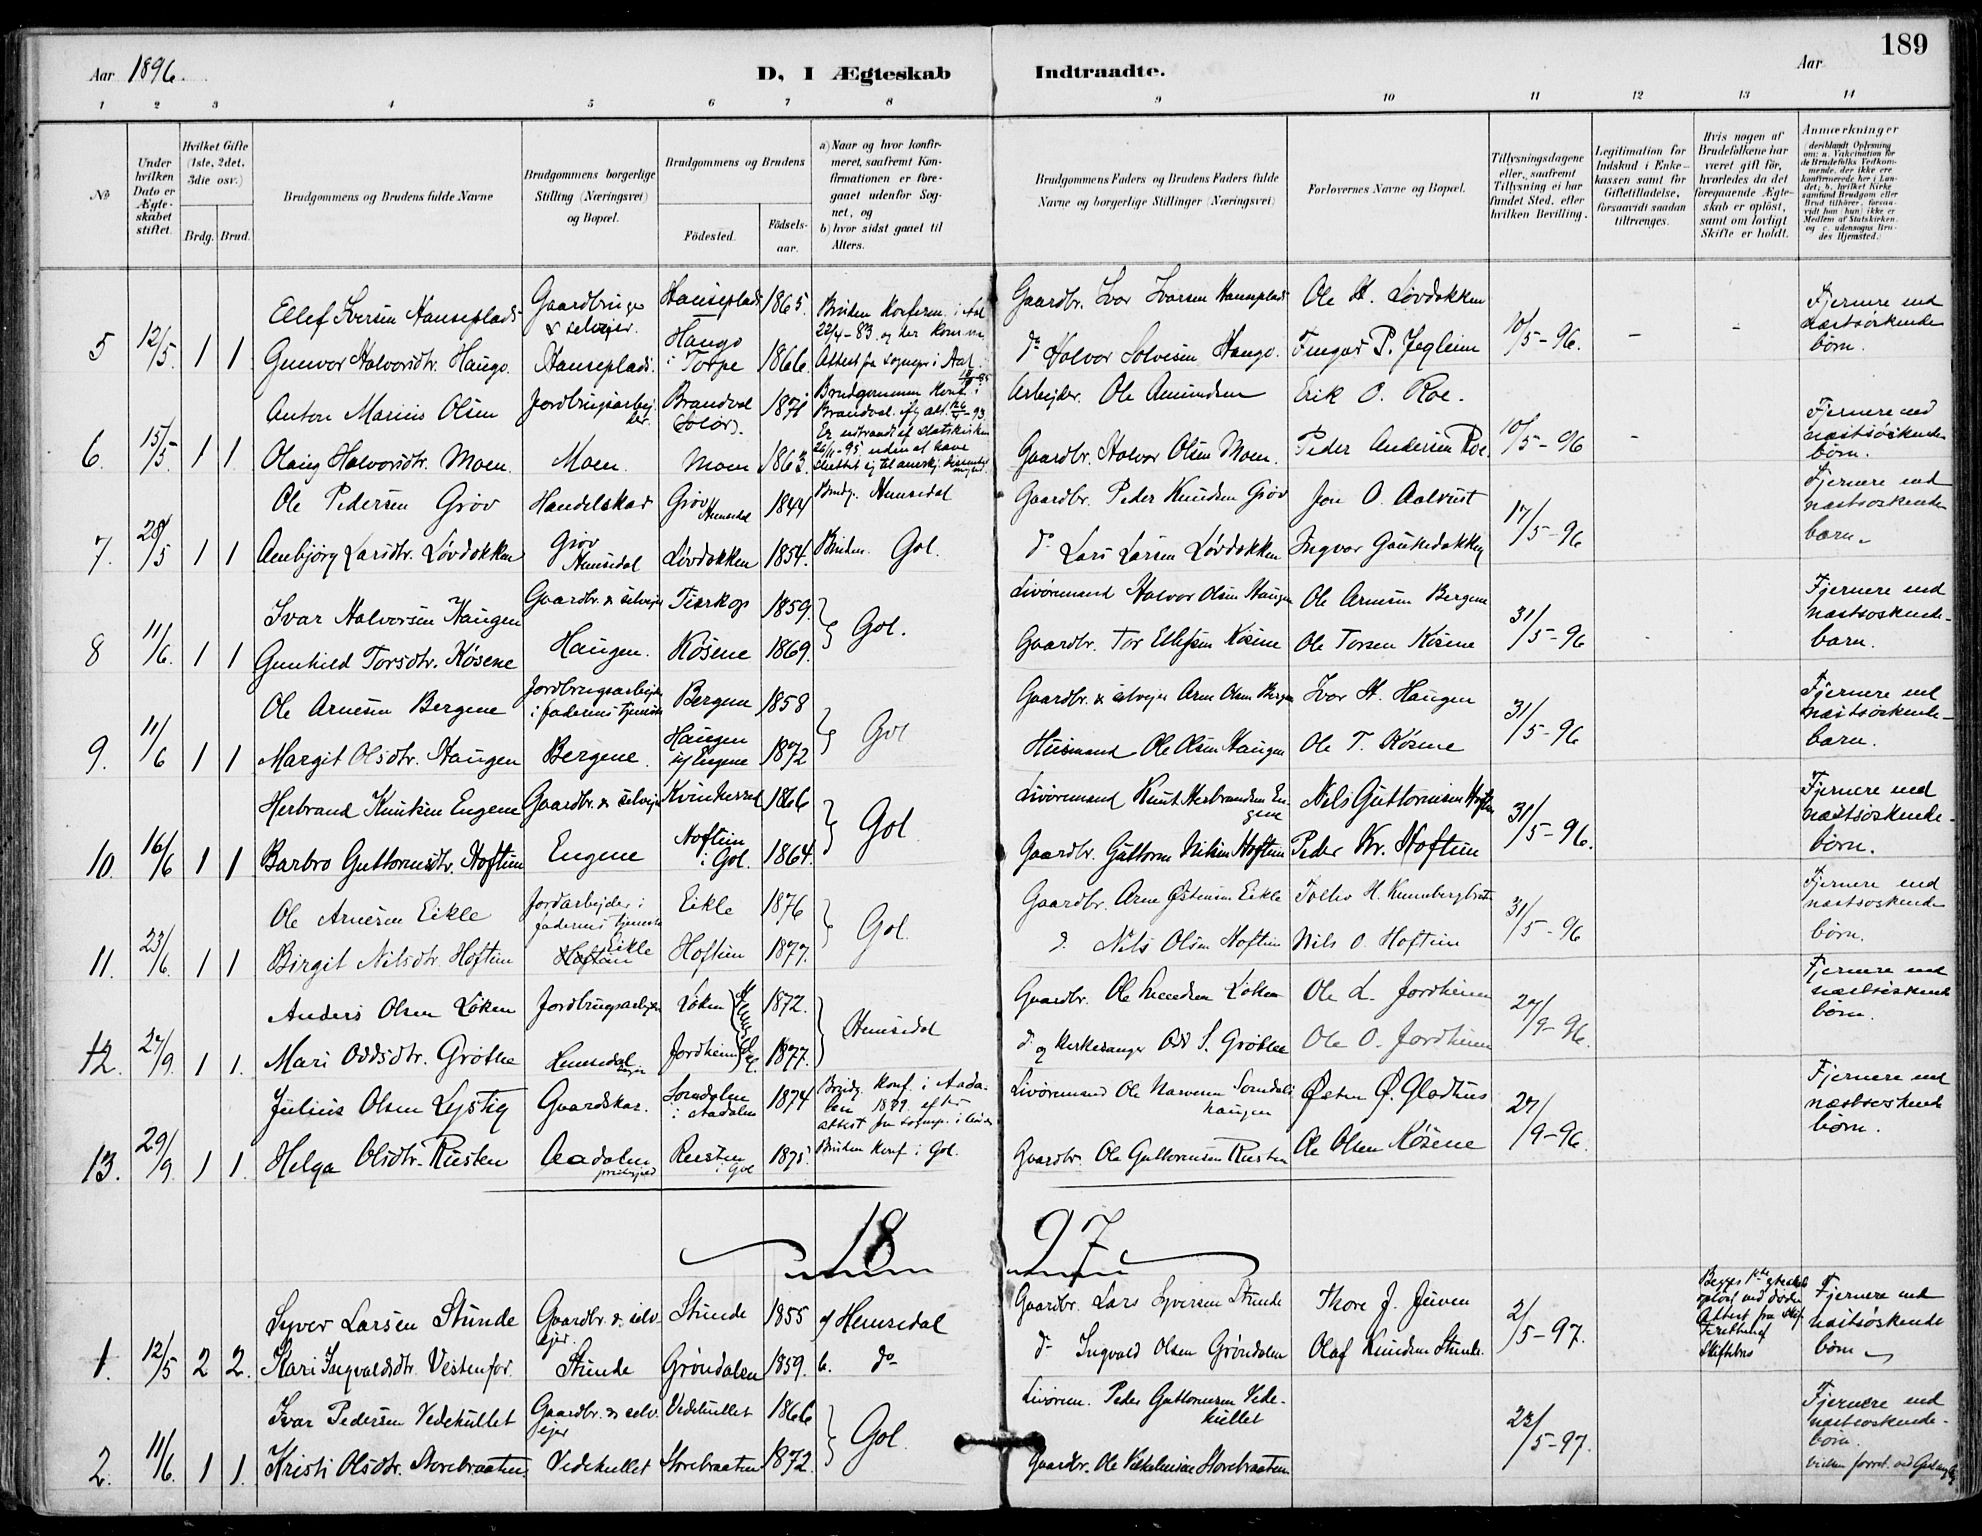 189
Aar 1896.
D, I Ægteskab Indtraadte.
Aar
1 2 3 4 5 6 7 8 9 10 11 12 13 14
No
Under hvilken Dato er Ægteskabet stiftet.
Hvilket Gifte (1ste, 2det, 3die osv.)
Brdg. Brud.
Brudgommens og Brudens fulde Navne
Brudgommens borgerlige Stilling (Næringsvei) og Bopæl.
Brudgommens og Brudens
Fødested.
Fødselsaar.
a) Naar og hvor konfirmeret, saafremt Konfirmationen er foregaaet udenfor Sognet, og
b) hvor sidst gaaet til Alters.
Brudgommens Faders og Brudens Faders fulde Navne og borgerlige Stillinger (Næringsvei)
Forlovernes Navne og Bopæl.
Tillysningsdagene eller, saafremt Tillysning ei har fundet Sted, efter hvilken Bevilling.
Legitimation for Indskud i Enkekassen samt for Giftetilladelse, forsaavidt saadan tiltrænges.
Hvis nogen af Brudefolkene har været gift før, hvorledes da det foregaaende Ægteskab er opløst, samt om lovligt Skifte er holdt.
Anmærkninger (deriblandt Oplysning om: a. Vakcination for de Brudefolks Vedkommende, der ikke ere konfirmerede her i Landet; b. hvilket Kirkesamfund Brudgom eller Brud tilhører, forsaavidt han (hun) ikke er Medlem af Statskirken, og c. udensogns Brudes Hjemsted.)
Ellef Iversen Hanseplads Gaardbruger & selveier. Hanseplads 1865. Gaardbr. Ivar Ivarsen Hanseplads Ole H. Løvdokken Fjernere end næstsøskendebørn.
5 12/5 1 1 Gunvor Halvorsdtr. Haugo. Hanseplads. Haugo i Torpe 1866. Bruden Konferm. i Aal 22/4-83 do Halvor Solvesen Haugo. Fingar P. Jegleim 10/5-96. - -
Anton Marius Olsen Jordbrugsarbejder Brandval (Solør). 1871 Brudgommen Konf. i Brandval Arbejder Ole Amundsen Erik O. Roe. Fjernere end næstsøskendebørn.
6. 15/5. 1 1. Olaug Halvorsdtr. Moen. Moen. Moen 1863. Gaardbr. Halvor Olsen Moen. Peder Andersen Roe. 10/5-96 -
Ole Pedersen Grøv Handelskar Grøv Hemsedal 1844 Brudg. Hemsedal Gaardbr. Peder Knudsen Grøv Jon O. Aalrust Fjernere end næstsøskendebarn.
7. 28/5 1 1 Annbjørg Larsdtr. Løvdokken Grøv Hemsedal Løvdokken 1854. Bruden Gol. do Lars Larsen Løvdokken Ingvar Gaukedokken 17/5-96
Ivar Halvorsen Haugen Gaardbr. & selvejer Tierkop 1859. Livøremand Halvor Olsen Haugen Ole Arnesen Bergene Fjernere end næstsøskendebarn.
8 11/6. 1 1 Gunhild Torsdtr. Kösene Haugen. Kösene 1869. Gol. Gaardbr. Tor Ellefsen Kösene Ole Torsen Kösene 31/5-96
Ole Arnesen Bergene Jordbrugsarbejder i faderens tjeneste Bergene 1858 Gaardbr. & selvejer Arne Olsen Bergene Ivar H. Haugen Fjernere end næstsøskendebarn.
9. 11/6 1 1 Margit Olsdtr. Haugen Bergene. Haugen 1872 Gol Husmand Ole Olsen Haugen Ole T. Kösene 31/5-96
Herbrand Knutsen Eugene Gaardbr. & selvejer 1866 Livøremand Knut Herbrandsen Eugene Nils Guttormsen Hoftun Fjernere end næstsøskendebørn.
10. 16/6 1 1 Barbro Guttormsdtr. Hoftun Eugene Hoftun i Gol. 1864. Gol Gaardbr. Guttorm Nilsen Hoftun Peder Kr. Hoftun 31/5-96.
Ole Arnesen Eikle Jordarbejder i faderens tjeneste Eikle 1876 Gaardbr. Arne Østensen Eikle Fjernere end næstsøskendebørn.
11. 23/6. 1 1 Birgit Nilsdtr. Hoftun Eikle Hoftun Hoftun 1877. Gol. d. Nils Olsen Hoftun Nils O. Hoftun 31/5-96
Anders Olsen Løken Jordbrugsarbejder Løken 1872. Gaardbr. Ole Løken Ole L. Jordheim Fjernere end næstsøskendebørn.
12. 27/9. 1 1. Mari Oddsdtr. Grøthe Hemsedal Jordheim 1877. Hemsedal d. og Kirkesanger Odd S. Grøthe Ole O. Jordheim 27/9-96.
Julius Olsen Lystig Gaardskar. Sorndalen i Aadalen 1874 Brudg. Konf. i Aadalen 1889 efter attest fra Livøremand Ole Sorndalshaugen Østen Ø. Gladhus Fjernere end næstsøskendebørn.
13. 29/9. 1 1. Helga Olsdtr. Rusten Aadalen præstegjeld Rusten i Gol 1875 Bruden Konf. i Gol. Gaardbr. Ole Guttormsen Rusten Ole Olsen Kösene 27/9-96.
1897
Syver Larsen Stunde Gaardbr. & selvejer. Stunde 1855 a. Hemsedal Gaardbr. Lars Syversen Stunde Thore J. Juven Begges 1ste ægteskab opløst ved døden Attest fra Skifteretten Fjernere end næstsøskendebørn
1. 12/5 2 2. Kari Ingvaldsdtr. Vestenfor. Stunde Grøndalen 1859. b. do do Ingvald Olsen Grøndalen Olaf Knudsen Stunde. 2/5-97.
Ivar Pedersen Vedehullet Gaardbr. & selvejer Vedehullet 1866 Livørem. Peder Guttormsen Vedehullet Fjernere end næstsøskendebørn.
2. 11/6. 1 1. Kristi Olsdtr. Storebraaten Vedehullet Storebraaten 1872. Gol. Gaardbr. Ole Storebraaten 23/5-97.